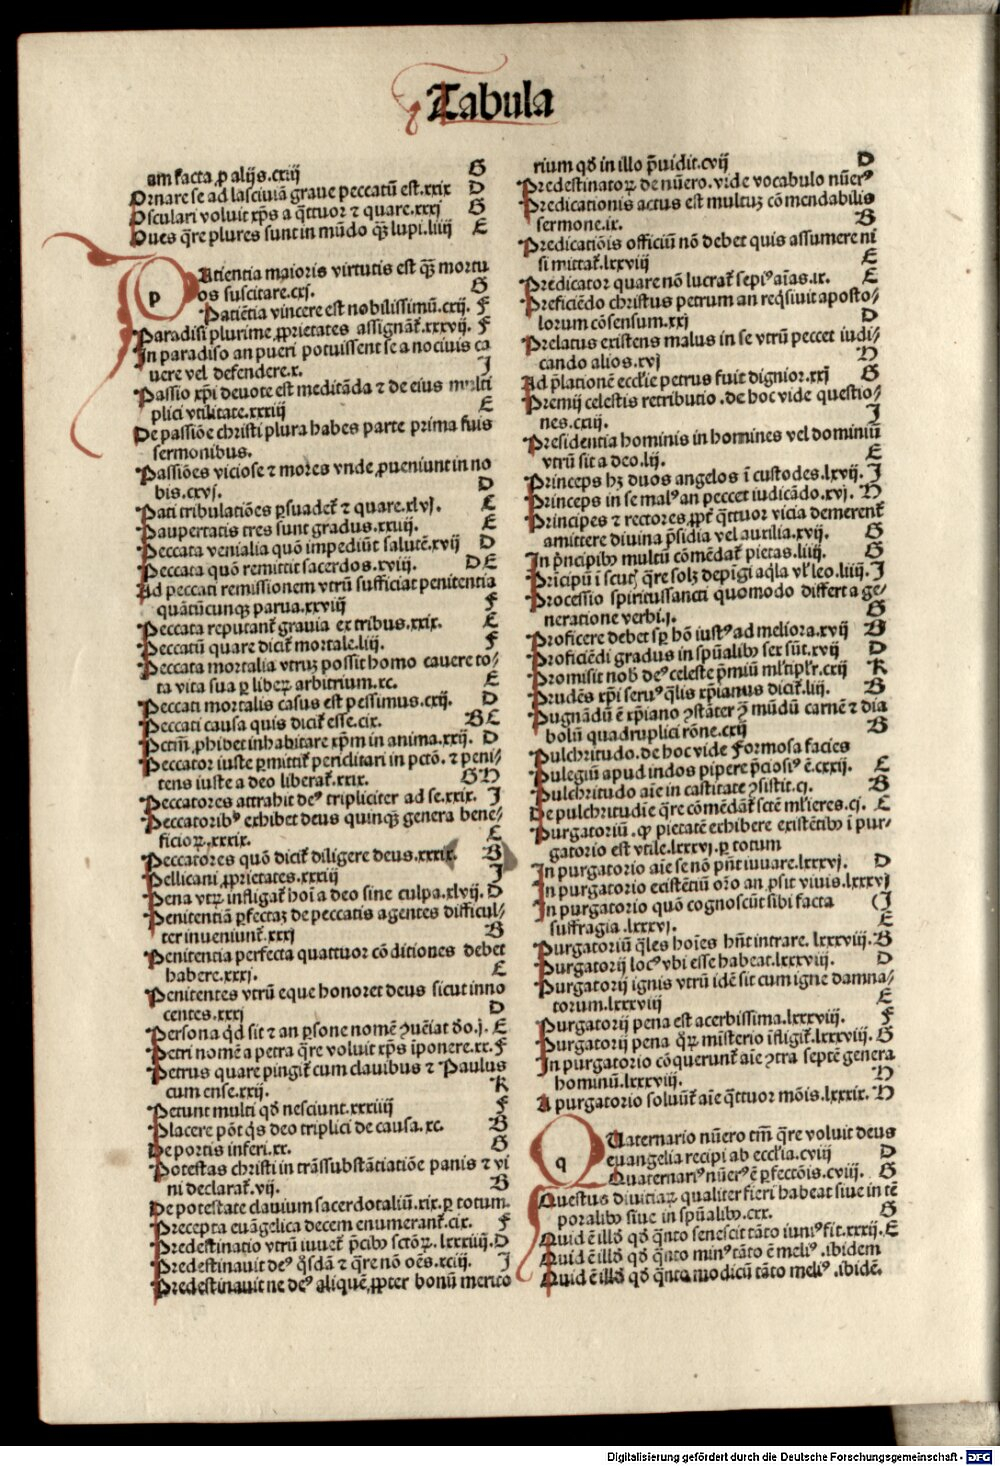 Tabula
am facta ꝓ alijs.cxiij G
Ornare se ad lasciuiā graue peccatū est.xxix D
Osculari voluit xp̄s a q̄ttuor ⁊ quare.xxxj G
Oues q̄re plures sunt in mūdo qȝ lupi.liiij E
PAtientia maioris virtutis est qȝ mortu
os suscitare.cxj. G
Patiētia vincere est nobilissimū.cxij. F
Paradisi plurime ꝓprietates assignāt̄.xxxvij. F
In paradiso an pueri potuissent se a nociuis ca
uere vel defendere.x. J
Passio xp̄i deuote est meditāda ⁊ de eius multi
plici vtilitate.xxxiij E
De passiōe christi plura habes parte prima huis
sermonibus.
Passiōes viciose ⁊ mores vnde ꝓueniunt in no
bis.cxvj. D
Pati tribulatiōes ꝑsuadet̄ ⁊ quare.xlvj. C
Paupertatis tres sunt gradus.xxvij. E
Peccata venialia quō impediūt salutē.xvij D
Peccata quō remittit sacerdos.xviij. D E
Ad peccati remissionem vtrū sufficiat penitentia
quātūcunqȝ parua.xxviij F
Peccata reputant̄ grauia ex tribus.xxix. E
Peccatū quare dicit̄ mortale.liij. F
Peccata mortalia vtruȝ possit homo cauere to⸗
ta vita sua ꝑ liberꝝ arbitrium.xc. E
Peccati mortalis casus est pessimus.cxij. D
Peccati causa quis dicit̄ esse.cix. B C
Pctm̄ ꝓhibet inhabitare xp̄m in anima.xxij. D
Peccator iuste ꝑmittit̄ periclitari in pctō. ⁊ peni⸗
tens iuste a deo liberat̄.xxix. G H
Peccatores attrahit deꝰ tripliciter ad se.xxix. J
Peccatoribꝰ exhibet deus quinqȝ genera bene⸗
ficioꝝ.xxxix. C
Peccatores quō dicit̄ diligere deus.xxxix. B
Pellicani ꝓprietates.xxxiij J
Pena vtꝝ infligat̄ hoī a deo sine culpa.xlvij. D
Penitentiā ꝑfectaȝ de peccatis agentes difficul⸗
ter inueniunt̄.xxxj B
Penitentia perfecta quattuor cōditiones debet
habere.xxxj. C
Penitentes vtrū eque honoret deus sicut inno
centes.xxxj D
Persona qd̄ sit ⁊ an ꝑsone nomē ꝯuēiat deo.j. E
Petri nomē a petra q̄re voluit xp̄s īponere.xx. F
Petrus quare pingit̄ cum clauibus ⁊ Paulus
cum ense.xxij. K
Petunt multi qd̄ nesciunt.xxxiiij F
Placere pōt qs̄ deo triplici de causa.xc. B
De portis inferi.xx. G
Potestas christi in trāssubstātiatiōe panis ⁊ vi
ni declarat̄.vij. B
De potestate clauium sacerdotaliū.xix. ꝑ totum.
Precepta euāgelica decem enumerant̄.cix. F
Predestinatio vtrū iuuet̄ p̄cibꝰ sctōꝝ.lxxxiiij. D
Predestinauit deꝰ qͦsdā ⁊ q̄re nō oēs.xciij. J
Predestinauit ne deꝰ aliquē ꝓpter bonū merito
rium qd̄ in illo p̄uidit.cvij D
Predestinatoꝝ de nūero.vide vocabulo nūerꝰ
Predicationis actus est multuȝ cōmendabilis
sermone.ix. B
Predicatiōis officiū nō debet quis assumere ni
si mittat̄.lxxviij E
Predicator quare nō lucrat̄ sepiꝰ aīas.ix. E
Preficiēdo christus petrum an reqsiuit aposto⸗
lorum cōsensum.xxj D
Prelatus existens malus in se vtrū peccet iudi⸗
cando alios.xvj H
Ad p̄lationē eccl̄ie petrus fuit dignior.xxj G
Premij celestis retributio.de hoc vide questio⸗
nes.cxij. J
Presidentia hominis in homines vel dominiū
vtrū sit a deo.lij. E
Princeps hȝ duos angelos ī custodes.lxvij. J
Princeps in se malꝰ an peccet iudicādo.xvj. H
Principes ⁊ rectores ꝓpt̄ q̄ttuor vicia demerent̄
amittere diuina p̄sidia vel auxilia.xvij. G
In p̄ncipibꝰ multū cōmēdat̄ pietas.liiij. G
Prīcipū ī scut̄ q̄re solȝ depīgi aqla vl̄ leo.liiij. J
Processio spiritussancti quomodo differt a ge⸗
neratione verbi.j. G
Proficere debet sꝑ hō iustꝰ ad meliora.xvij B
Proficiēdi gradus in spūalibꝰ sex sūt.xvij D
Promisit nob̄ deꝰ celeste p̄miū ml̄tiplr̄.cxij K
Prudēs xp̄i seruꝰ qlis xp̄ianus dicit̄.liij. B
Pugnādū ē xp̄iano ꝯstāter ꝯ̄ mūdū carnē ⁊ dia
bolū quadruplici rōne.cxij B
Pulchritudo.de hoc vide Formosa facies
Pulegiū apud indos pipere p̄ciosiꝰ ē.cxxij. C
Pulchritudo aīe in castitate ꝯsistit.cj. B
De pulchritudīe q̄re cōmēdāt̄ sctē ml̄ieres.cj. C
Purgatoriū. qꝙ pietatē exhibere existētibꝰ ī pur⸗
gatorio est vtile.lxxxvj. ꝑ totum
In purgatorio aīe se nō pn̄t iuuare.lxxxvj. D
In purgatorio existētiū orō an ꝓsit viuis.lxxxvj
In purgatorio quō cognoscūt sibi facta (J
suffragia.lxxxvj. E
Purgatoriū qles hoīes hn̄t intrare.lxxxviij. B
Purgatorij locꝰ vbi esse habeat.lxxxviij. D
Purgatorij ignis vtrū idē sit cum igne damna⸗
torum.lxxxviij E
Purgatorij pena est acerbissima.lxxxviij. F
Purgatorij pena qͦꝝ mīsterio īfligit̄.lxxxviij. G
In purgatorio cōquerunt̄ aīe ꝯtra septē genera
hominū.lxxxviij. H
A purgatorio soluūt̄ aīe q̄ttuor mōis.lxxxix. H
QUaternario nūero tm̄ q̄re voluit deus
euangelia recipi ab eccl̄ia.cviij D
Quaternariꝰ nūerꝰ ē ꝑfectōis.cviij. G
Questus diuitiaꝝ qualiter fieri habeat siue in tē
poralibꝰ siue in spūalibꝰ.cxx. G
Quid ē illd̄ qd̄ q̄nto senescit tāto iuniꝰ fit.xxxij. E
Quid ē illd̄ qd̄ q̄nto minꝰ tāto ē meliꝰ.ibidem
Quid ē illd̄ qd̄ q̄nto modicū tāto meliꝰ.ibidē.
Digitalisierung gefördert durch die Deutsche Forschungsgemeinschaft - DFG